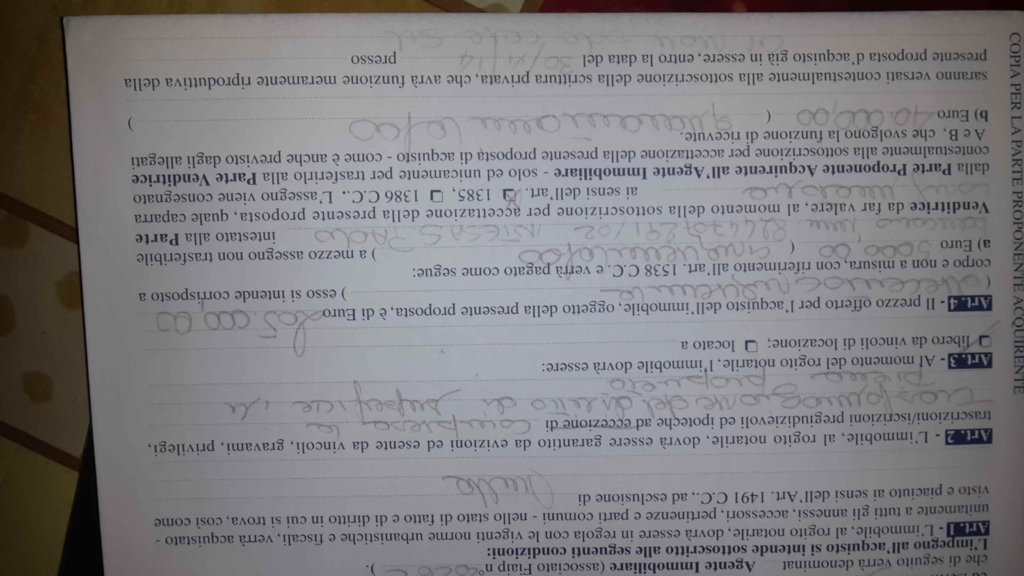 COPIA PER LA PARTE PROPONENTE ACQUIRENTE
che di seguito verrà denominat Agente Immobiliare (associato Fiaip n° ).
L'impegno all'acquisto si intende sottoscritto alle seguenti condizioni:
Art. 1 - L'immobile, al rogito notarile, dovrà essere in regola con le vigenti norme urbanistiche e fiscali, verrà acquistato -
unitamente a tutti gli annessi, accessori, pertinenze e parti comuni - nello stato di fatto e di diritto in cui si trova, così come
visto e piaciuto ai sensi dell'Art. 1491 C.C., ad esclusione di nulla
Art. 2 - L'immobile, al rogito notarile, dovrà essere garantito da evizioni ed esente da vincoli, gravami, privilegi,
trascrizioni/iscrizioni pregiudizievoli ed ipoteche ad eccezione di compresa la
trasformazione del diritto di superficie in
piena proprietà
Art. 3 - Al momento del rogito notarile, l'immobile dovrà essere:
libero da vincoli di locazione; locato a
Art. 4 - Il prezzo offerto per l'acquisto dell'immobile, oggetto della presente proposta, è di Euro 205.000,00
( duecentocinquemila ) esso si intende corrisposto a
corpo e non a misura, con riferimento all'art. 1538 C.C. e verrà pagato come segue:
a) Euro 5000,00 ( cinquemila/00 ) a mezzo assegno non trasferibile
bancario num. INTESA S. PAOLO intestato alla Parte
Venditrice da far valere, al momento della sottoscrizione per accettazione della presente proposta, quale caparra
confirmatoria ai sensi dell'art. 1385, 1386 C.C.. L'assegno viene consegnato
dalla Parte Proponente Acquirente all'Agente Immobiliare - solo ed unicamente per trasferirlo alla Parte Venditrice
contestualmente alla sottoscrizione per accettazione della presente proposta di acquisto - come è anche previsto dagli allegati
A e B, che svolgono la funzione di ricevute.
b) Euro 40.000,00 ( quarantamila/00 )
saranno versati contestualmente alla sottoscrizione della scrittura privata, che avrà funzione meramente riproduttiva della
presente proposta d'acquisto già in essere, entro la data del 30/11/14 presso